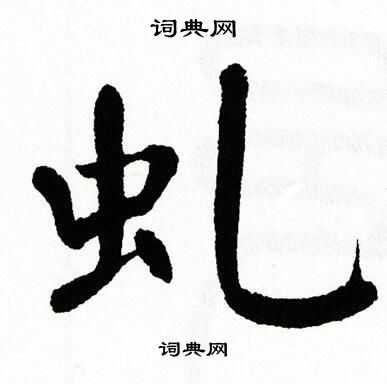 词典网
虬
词典网